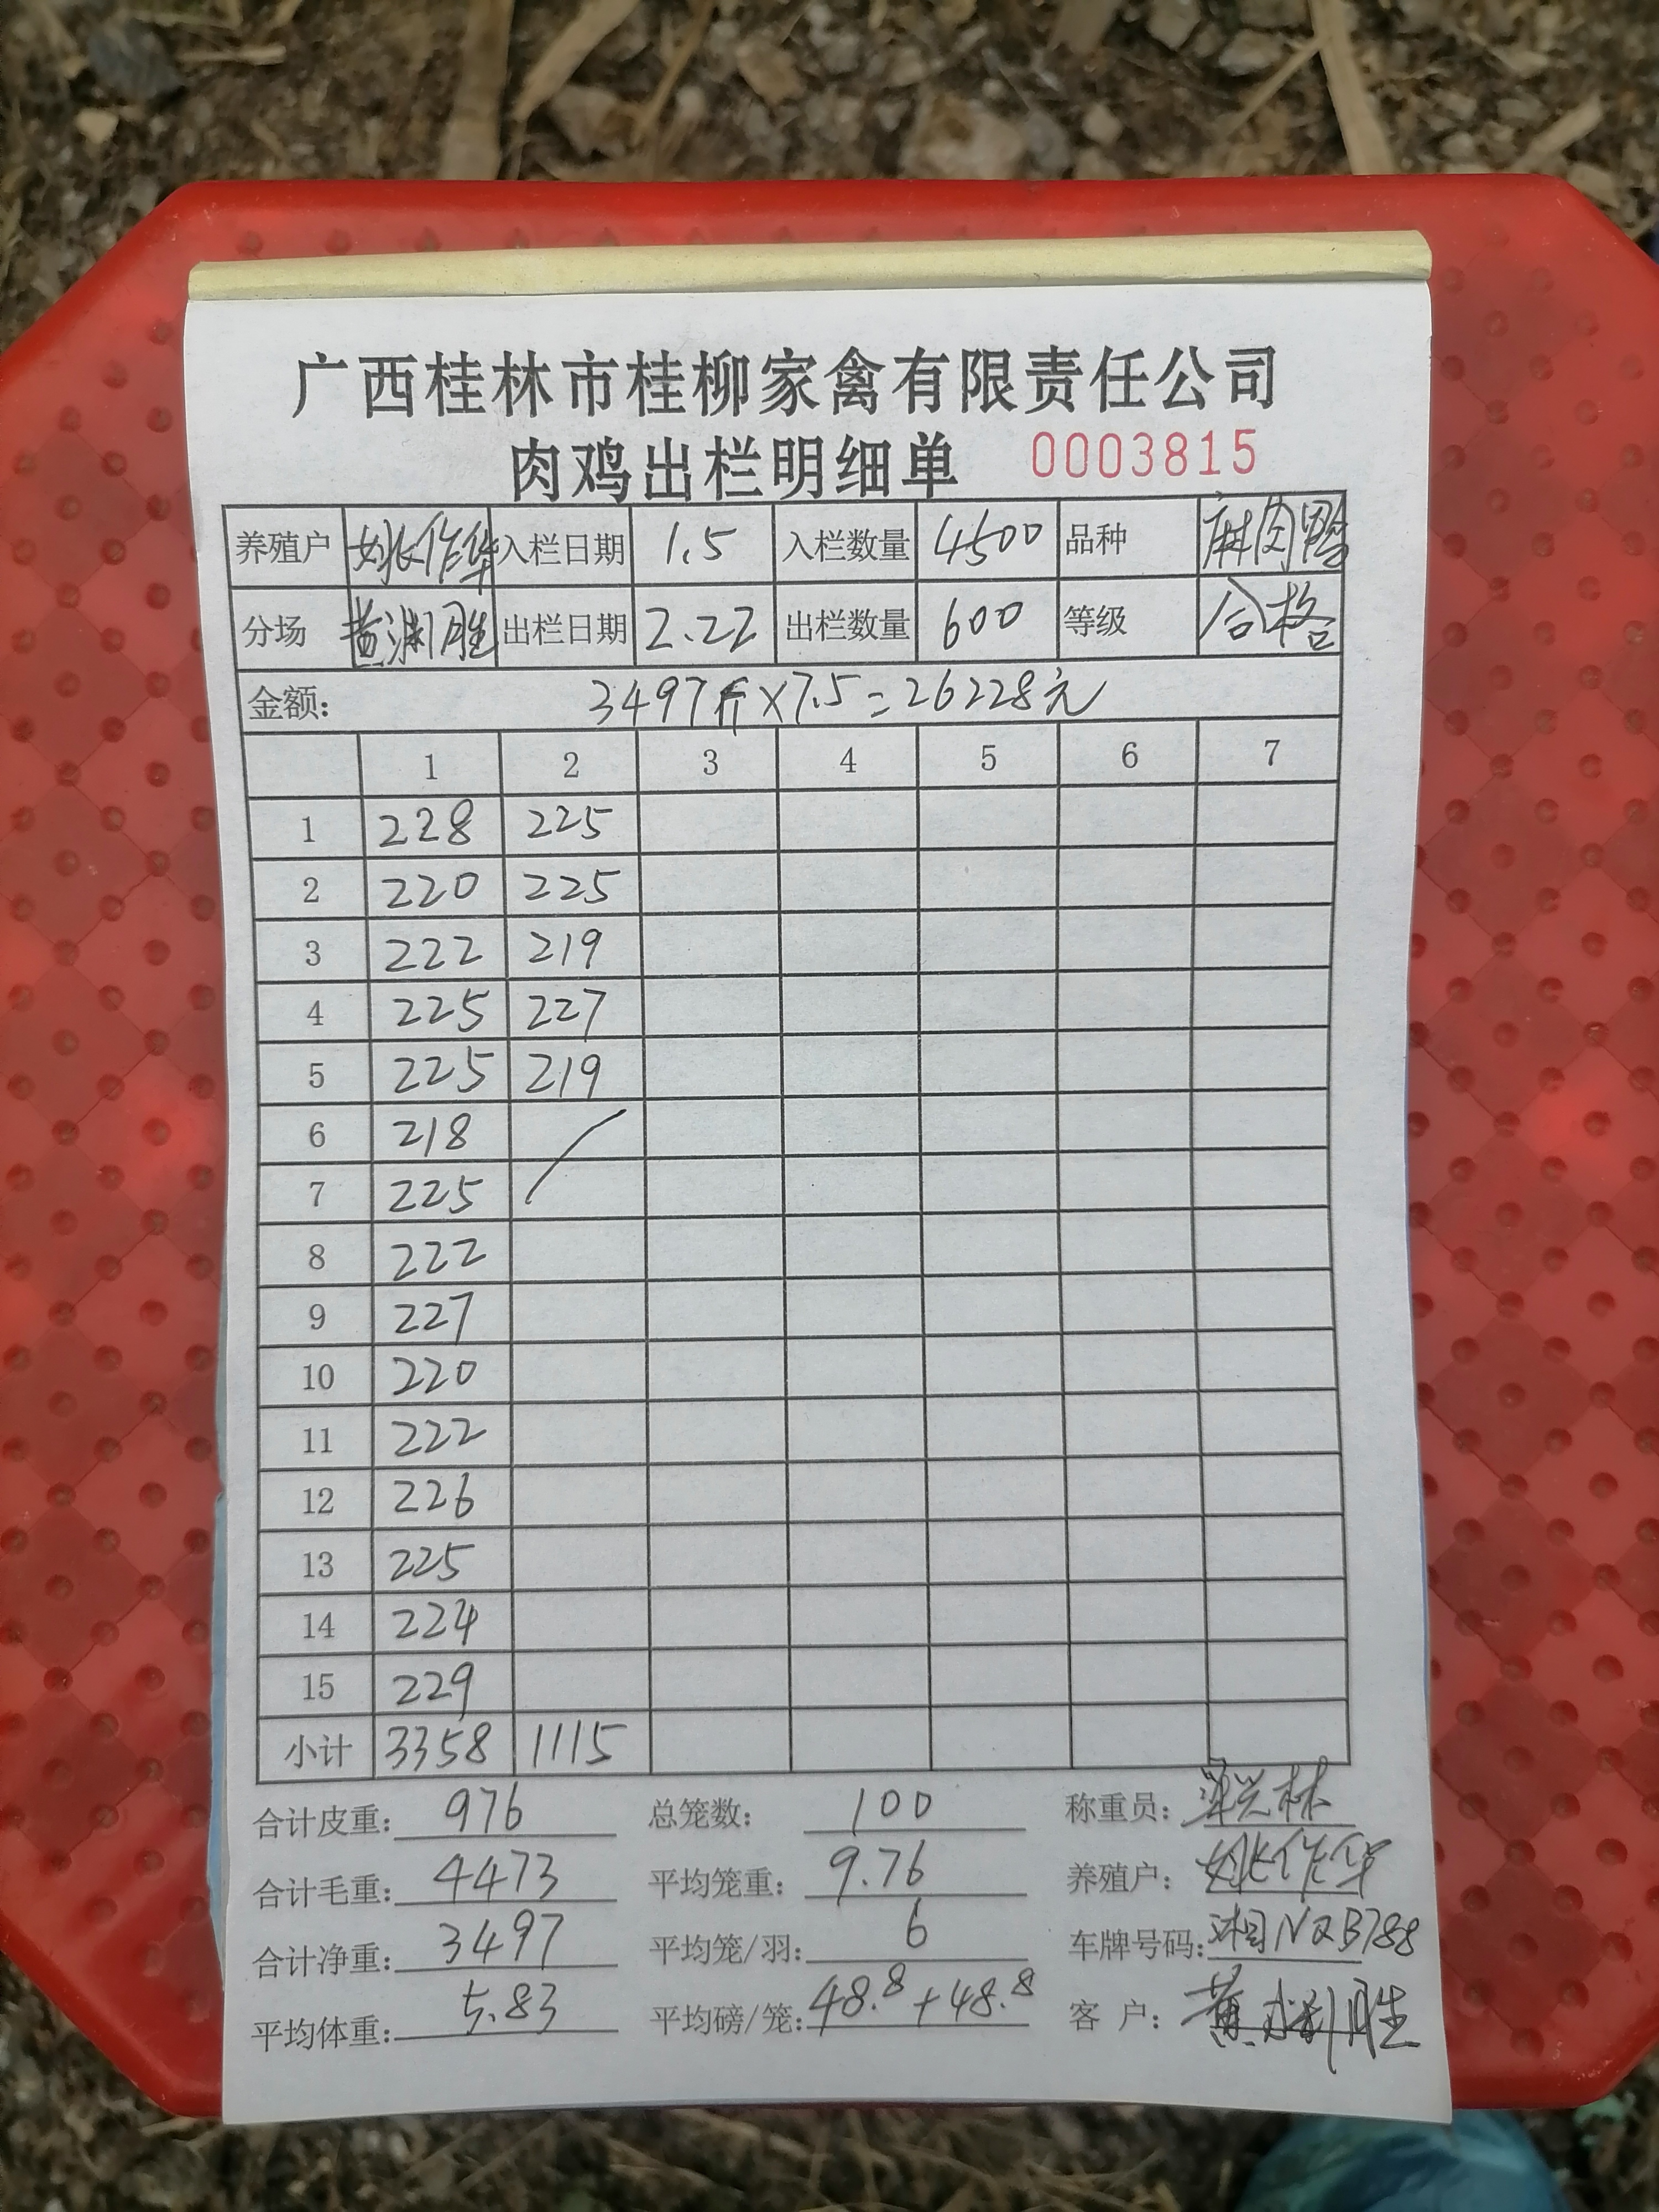 广西桂林市桂柳家禽有限责任公司
肉鸡出栏明细单 0003815
养殖户 姚作华 入栏日期 1.5 入栏数量 4500 品种 麻肉鸭
分场 黄渊胜 出栏日期 2.22 出栏数量 600 等级 合格
金额: 3497斤×7.5=26228元
1 2 3 4 5 6 7
1 228 225
2 220 225
3 222 219
4 225 227
5 225 219
6 218
7 225
8 222
9 227
10 220
11 222
12 226
13 225
14 224
15 229
小计 3358 1115
合计皮重: 976 总笼数: 100 称重员:
合计毛重: 4473 平均笼重: 9.76 养殖户: 姚作华
合计净重: 3497 平均笼/羽: 6 车牌号码:
平均体重: 5.83 平均磅/笼: 48.8+48.8 客 户: